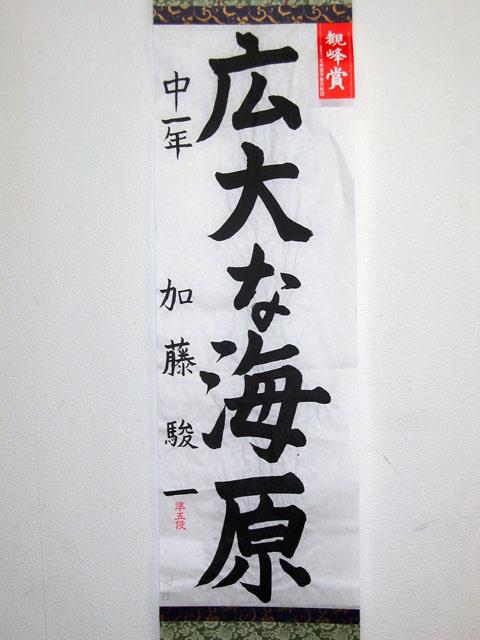 観峰賞
広大な海原
中一年
加藤駿一
準五段